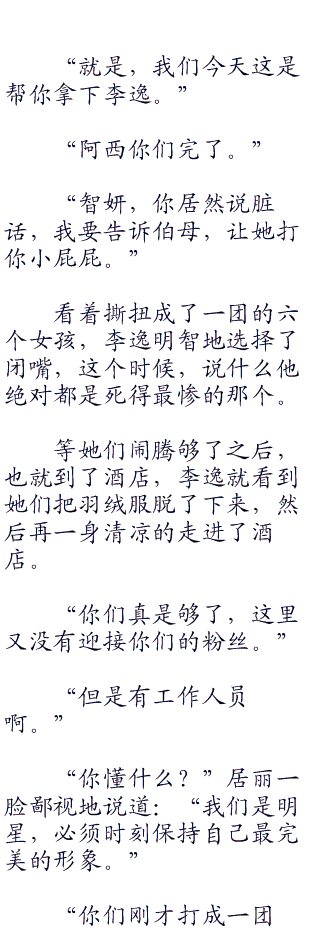 “就是，我们今天这是
帮你拿下李逸。”
“阿西你们完了。”
“智妍，你居然说脏
话，我要告诉伯母，让她打
你小屁屁。”
看着撕扭成了一团的六
个女孩，李逸明智地选择了
闭嘴，这个时候，说什么他
绝对都是死得最惨的那个。
等她们闹腾够了之后，
也就到了酒店，李逸就看到
她们把羽绒服脱了下来，然
后再一身清凉的走进了酒
店。
“你们真是够了，这里
又没有迎接你们的粉丝。”
“但是有工作人员
啊。”
“你懂什么？”居丽一
脸鄙视地说道：“我们是明
星，必须时刻保持自己最完
美的形象。”
“你们刚才打成一团